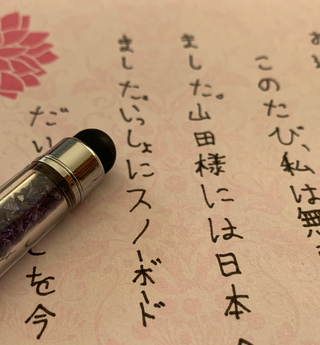 このたび、私は無
ました。山田様には日本
ました。いっしょにスノーボード
を今